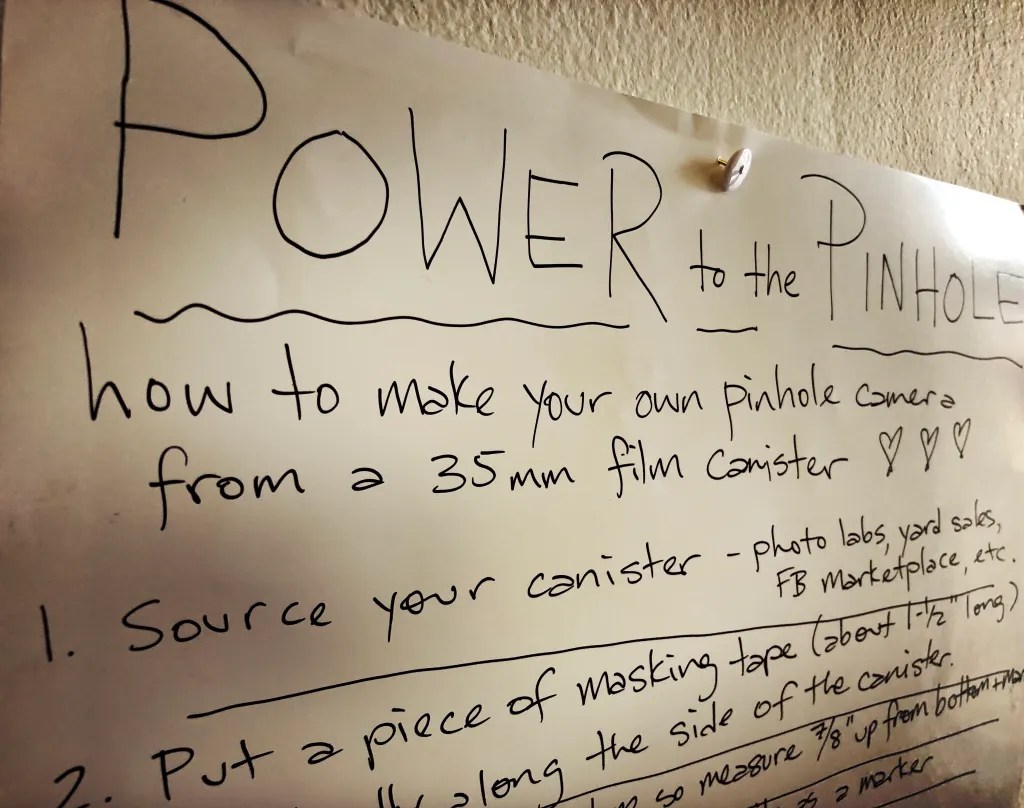 POWER to the PINHOLE
how to make your own pinhole camera
from a 35mm film canister ♡ ♡ ♡
1. Source your canister - photo labs, yard sales,
FB Marketplace, etc.
2. Put a piece of masking tape (about 1-1/2" long)
along the side of the canister.
so measure 7/8" up from bottom +
a marker